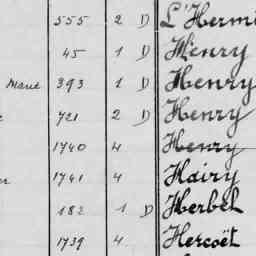 555 2 D L'Hermi
45 1 D Henry
Marie 393 1 D Henry
721 2 D Henry
1740 4 Henry
1741 4 Hairy
182 1 D Herbel
1739 4. Hercoët